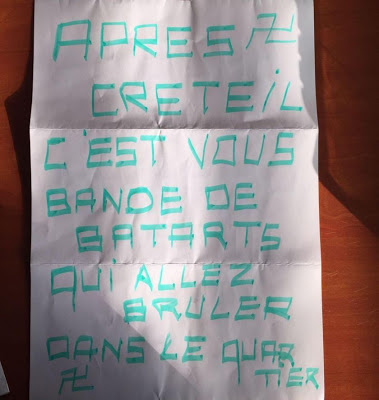 APRES 卍
CRETEIL
C'EST VOUS
BANDE DE
BATARTS
QUI ALLEZ
BRULER
DANS LE QUAR
卍 TIER